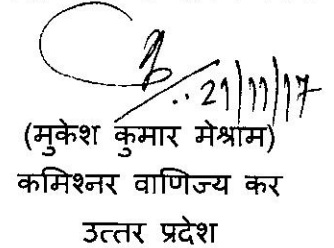 21/11/17
(मुकेश कुमार मेश्राम)
कमिश्नर वाणिज्य कर
उत्तर प्रदेश